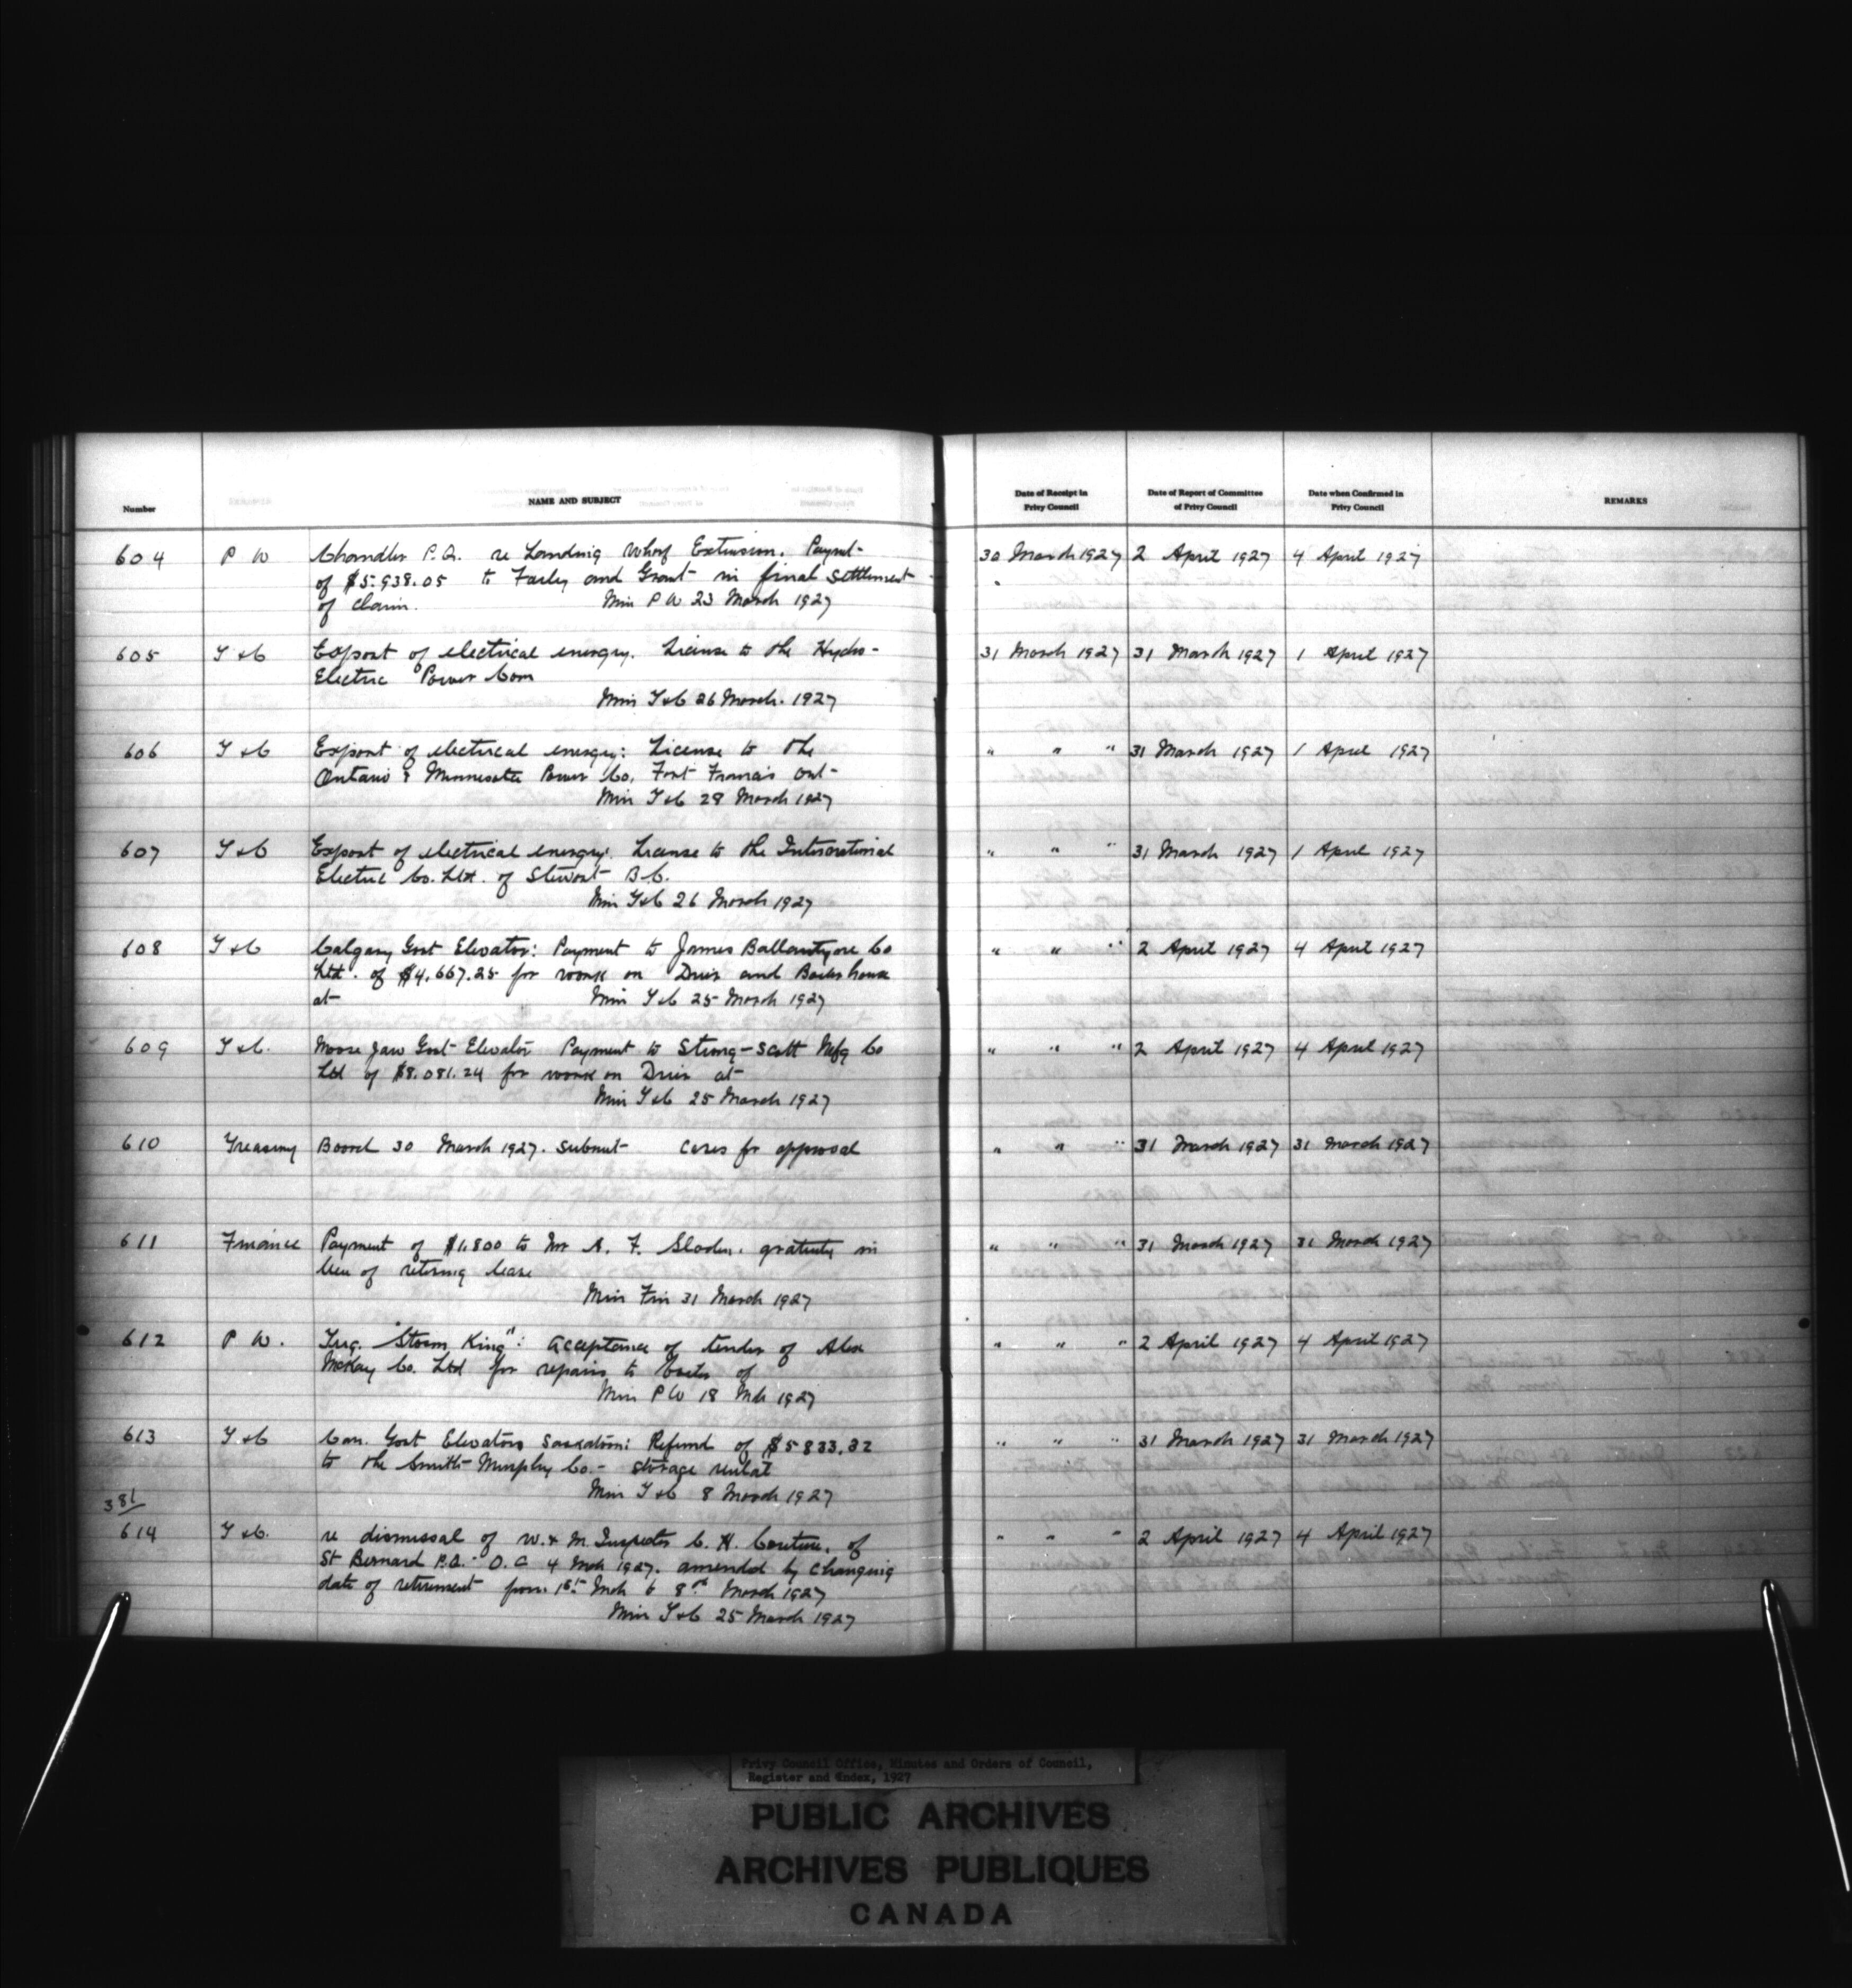 Number
NAME AND SUBJECT
Date of Receipt in Privy Council
Date of Report of Committee of Privy Council
Date when Confirmed in Privy Council
REMARKS
604 P W Chandler P.Q. re Landing Wharf Extension. Paymt- 30 March 1927 2 April 1927 4 April 1927
of $5.938.05 to Farley and Grant in final settlement
of claim. Min P W 23 March 1927
605 T & C Export of electrical energy. License to the Hydro- 31 March 1927 31 March 1927 1 April 1927
Electric Power Com
Min T & C 26 March. 1927
606 T & C Export of electrical energy: License to the " " " 31 March 1927 1 April 1927
Ontario & Minnesota Power Co. Fort Francis Ont-
Min T & C 28 March 1927
607 T & C Export of electrical energy: License to the International " " " 31 March 1927 1 April 1927
Electric Co. Ltd. of Stewart B.C.
Min T & C 26 March 1927
608 T & C Calgary Govt Elevator: Payment to James Ballantyne Co " " " 2 April 1927 4 April 1927
Ltd. of $4,667.25 for work on Drier and house
at- Min T & C 25 March 1927
609 T & C. Moose Jaw Govt Elevator Payment to Strong-Scott Mfg Co " " " 2 April 1927 4 April 1927
Ltd of $8.081.24 for work on Drier at-
Min T & C 25 March 1927
610 Treasury Board 30 March 1927. submit cases for approval " " " 31 March 1927 31 March 1927
611 Finance Payment of $1,800 to Mr A. F. Sladen. gratuity in " " " 31 March 1927 31 March 1927
lieu of retiring leave
Min Fin 31 March 1927
612 P W. Tug. "Storm King": acceptance of tender of Alex " " " 2 April 1927 4 April 1927
McKay Co. Ltd for repairs to of
Min P W 18 Mch 1927
613 T & C Can. Govt Elevators Saskatoon: Refund of $5833.32 " " " 31 March 1927 31 March 1927
to the Smith-Murphy Co.- storage rental
Min T & C 8 March 1927
381
614 T & C. re dismissal of W. & M. Inspector C. H. Couture. of " " " 2 April 1927 4 April 1927
St Bernard P.Q. - O.C 4 Mch 1927. amended by changing
date of retirement from 1st Mch to 8th March 1927
Min T & C 25 March 1927
Privy Council Office, Minutes and Orders of Council,
Register and Index, 1927
PUBLIC ARCHIVES
ARCHIVES PUBLIQUES
CANADA